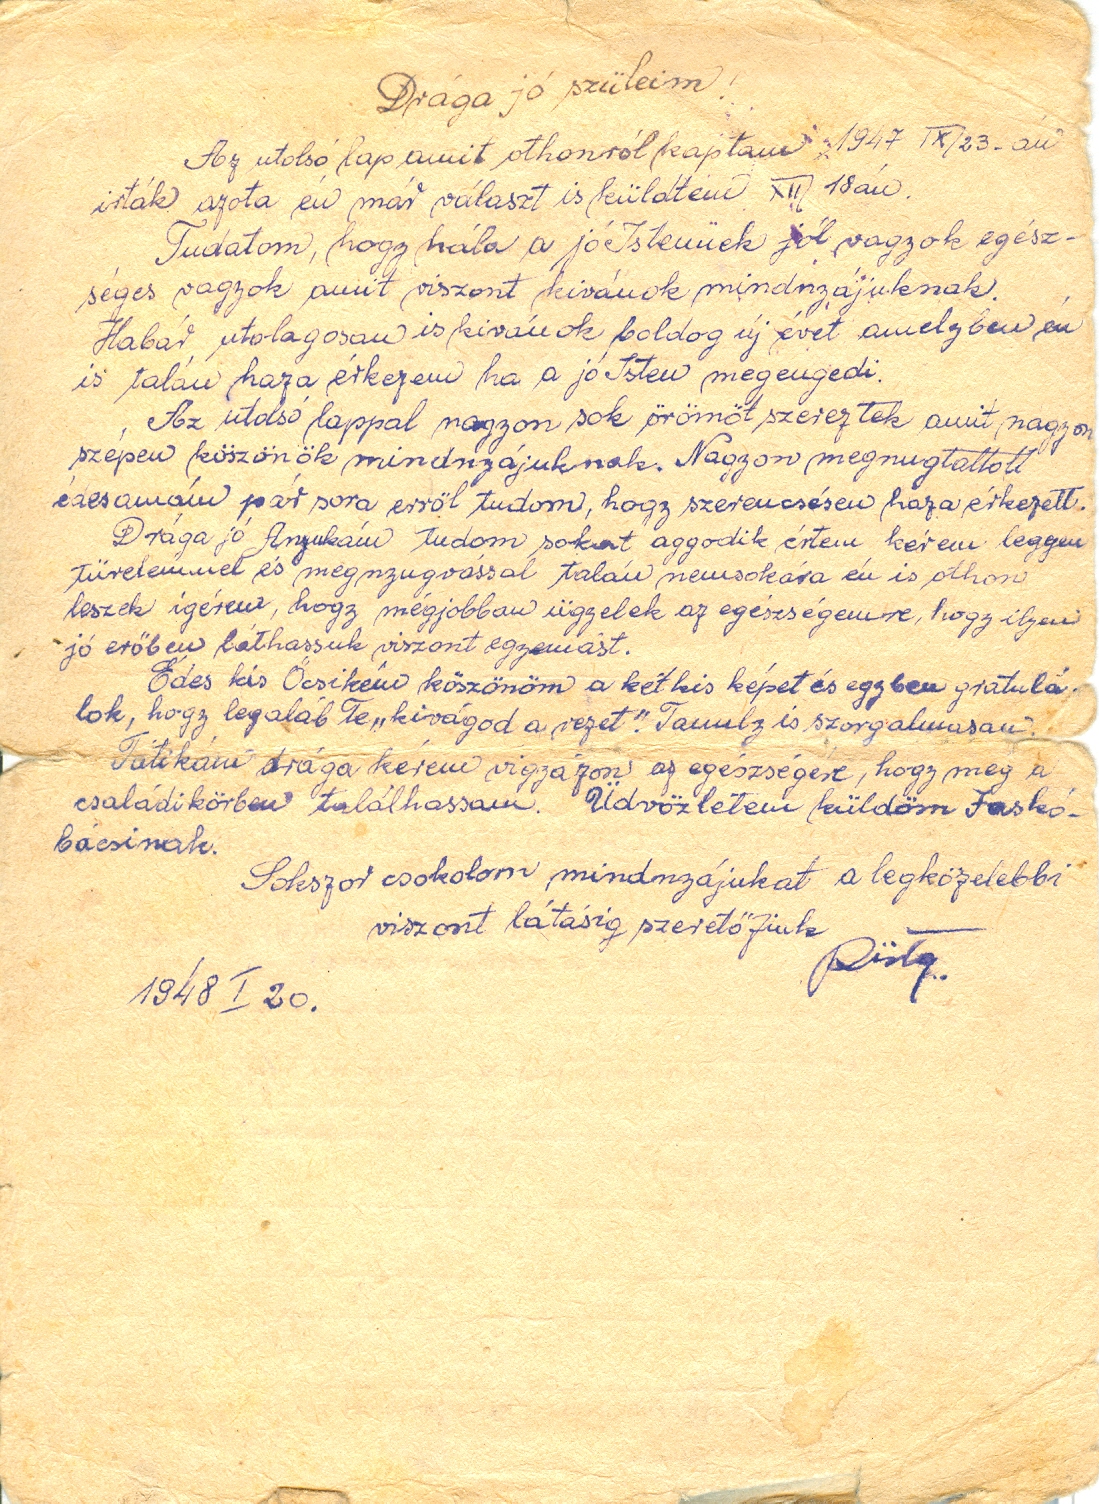 Drága jó szüleim!
Az utolsó lap amit othonról kaptam 1947 IX/23-án
irták azota én már választ is küldtem XII/ 18án.
Tudatom, hogy hála a jó Istenünek jól vagyok egész-
séges vagyok amit viszont kivánok mindnyájuknak.
Habár utolagosan is kivánok boldog új évet amelyben én
is talán haza érkezem ha a jó Isten megengedi.
Az utolsó lappal nagyon sok örömöt szereztek amit nagyon
szépen köszönök mindnyájuknak. Nagyon megnugtattott
édesamám pár sora erről tudom, hogy szerencsésen haza érkezett.
Drága jó Anyukám tudom sokat aggodik értem kerem leggyen
türelemmel és megnyugvással talán nemsokára én is othon
leszek igérem, hogy mégjobban ügyelek az egészségemre, hogy ilyen
jó erőben láthassuk viszont egyemást.
Édes kis Öcsikém köszönöm a két kis képet és egyben gratulá-
lok, hogy legaláb Te „kivágod a rezet". Tanulj is szorgalmasan.
Tatikám drága kérem vigyázzon az egészségére, hogy meg a
családi körben találhassam. Üdvözletem küldöm Faskó-
bácsinak.
Sokszor csokolom mindnyájukat a legközelebbi
viszont látásig szerető fiuk
1948 I 20.